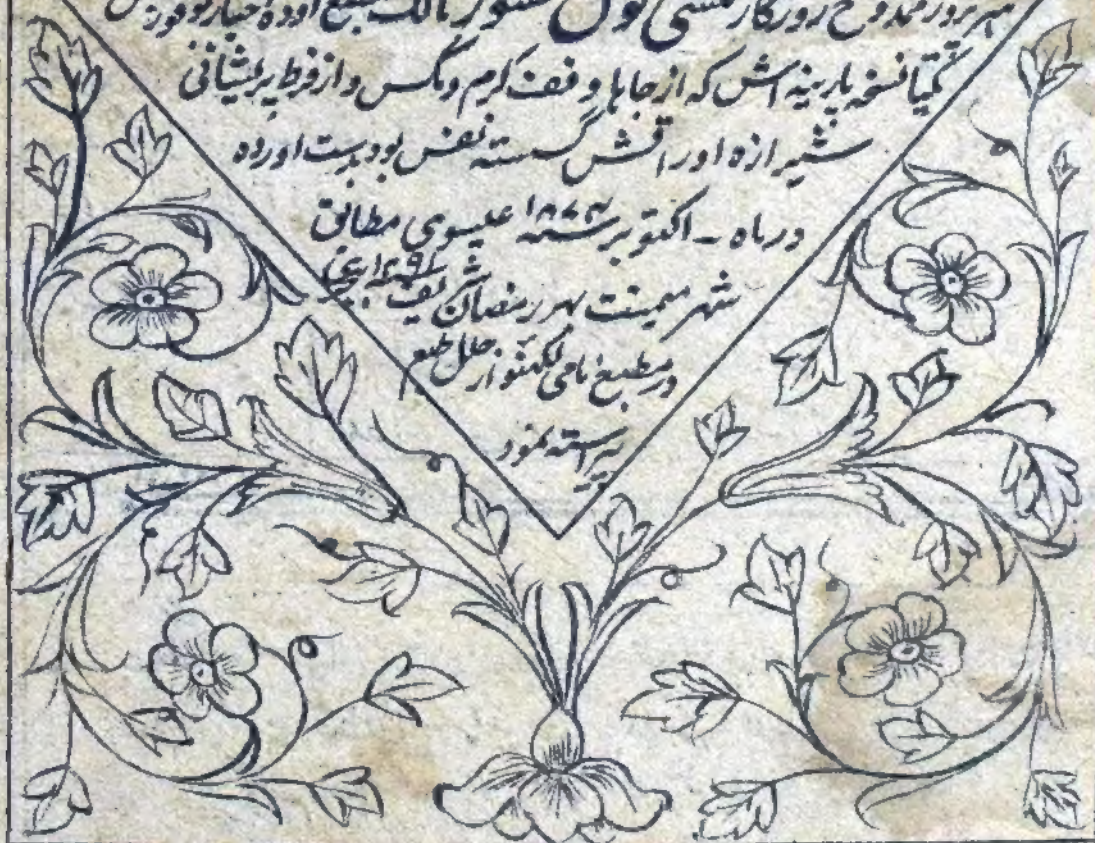 مہر پرور ممدوح روزگار منشی نول کشور مالک مطبع اودہ اخبار
یکتا نسخہ پارینہ اش کہ از جاہا وقف کرم و مگس و از فرط پریشانی
شیرازہ اوراقش گسستہ نفس بود بدست اوردہ
در ماہ ۔ اکتوبر ۱۸۷۴ عیسوی مطابق
شہر میمنت بہر رمضان شریف ۱۲۹۱ ہجری
در مطبع نامی لکہنؤ از حلل طبع
پیراستہ نمود